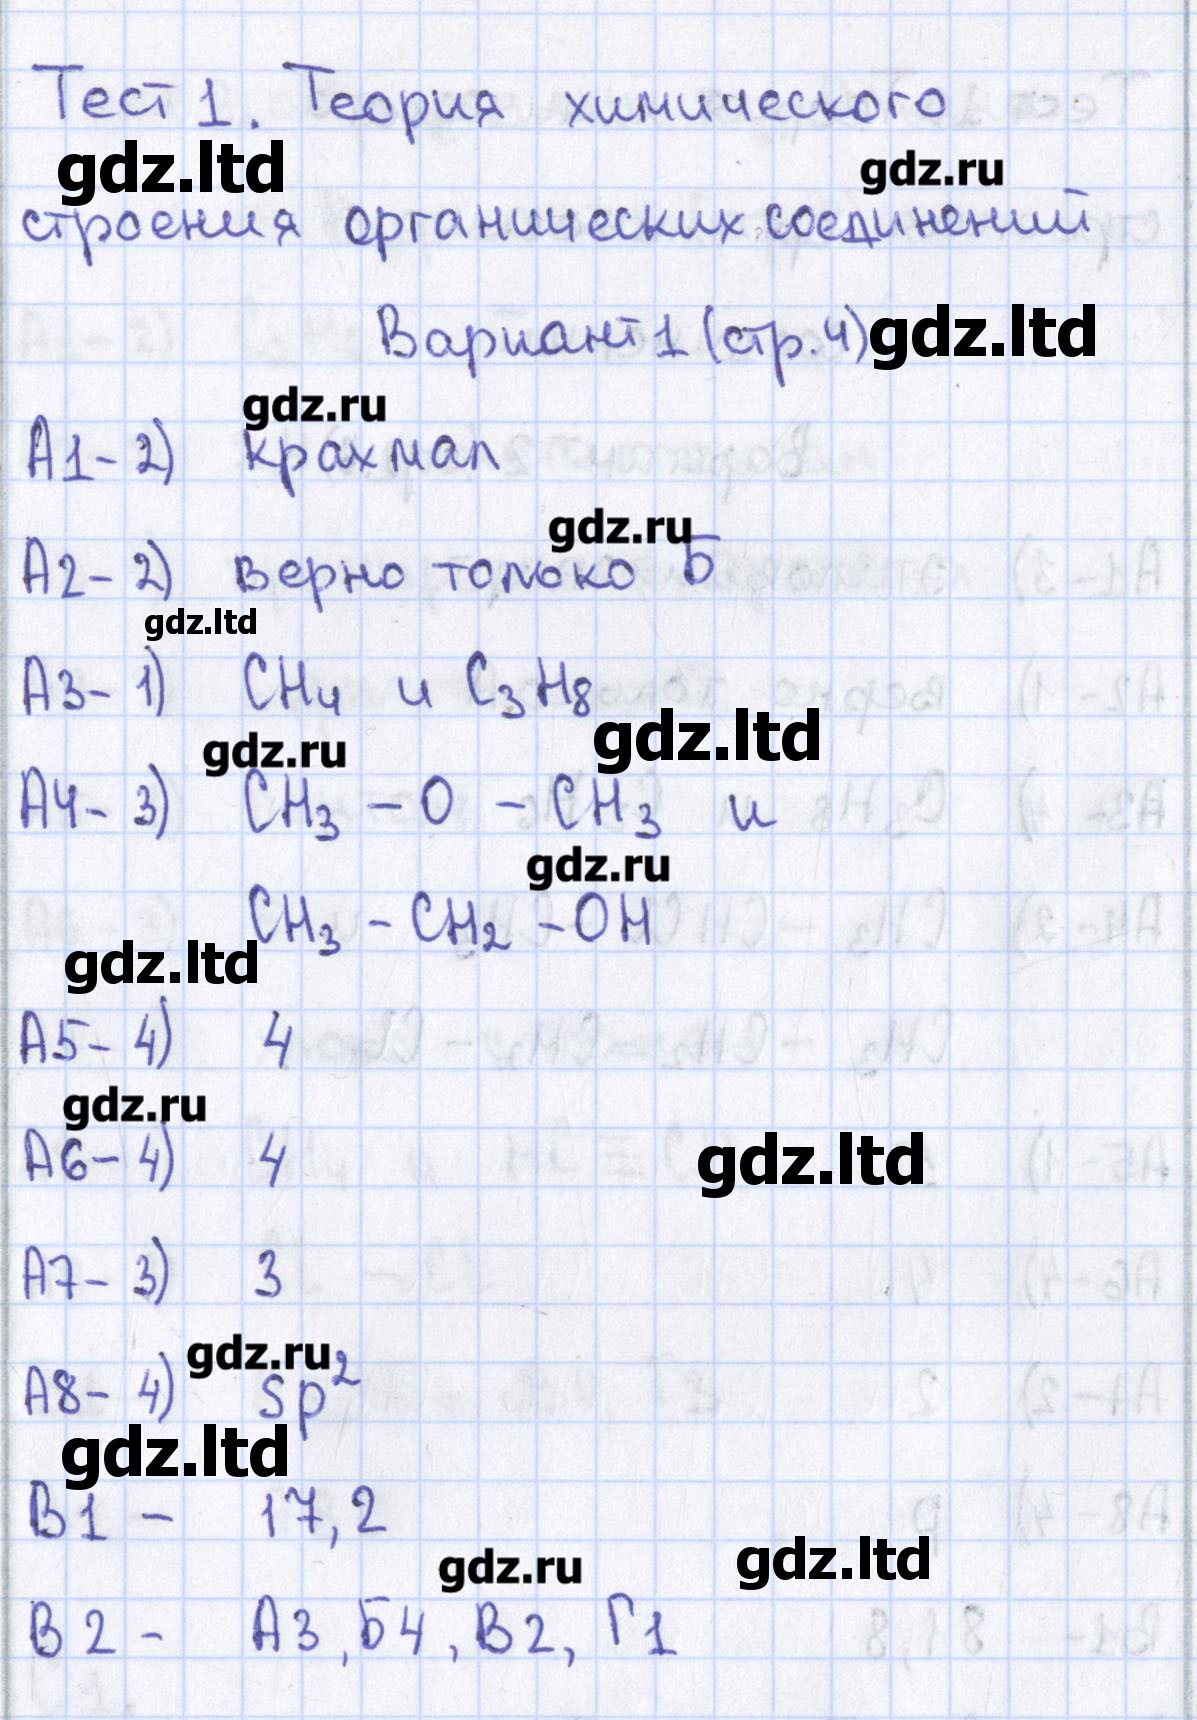 Тест 1. Теория химического
gdz.ltd gdz.ru
строения органических соединений
Вариант 1 (стр. 4) gdz.ltd
gdz.ru
А1 - 2) крахмал
gdz.ru
А2 - 2) верно только Б
gdz.ltd
А3 - 1) CH₄ и C₃H₈
gdz.ltd
gdz.ru
А4 - 3) CH₃ - O - CH₃ и
gdz.ru
CH₃ - CH₂ - OH
gdz.ltd
А5 - 4) 4
gdz.ru
А6 - 4) 4
gdz.ltd
А7 - 3) 3
gdz.ru
А8 - 4) sp²
gdz.ltd
В1 - 17,2
gdz.ru gdz.ltd
В2 - А3, Б4, В2, Г1